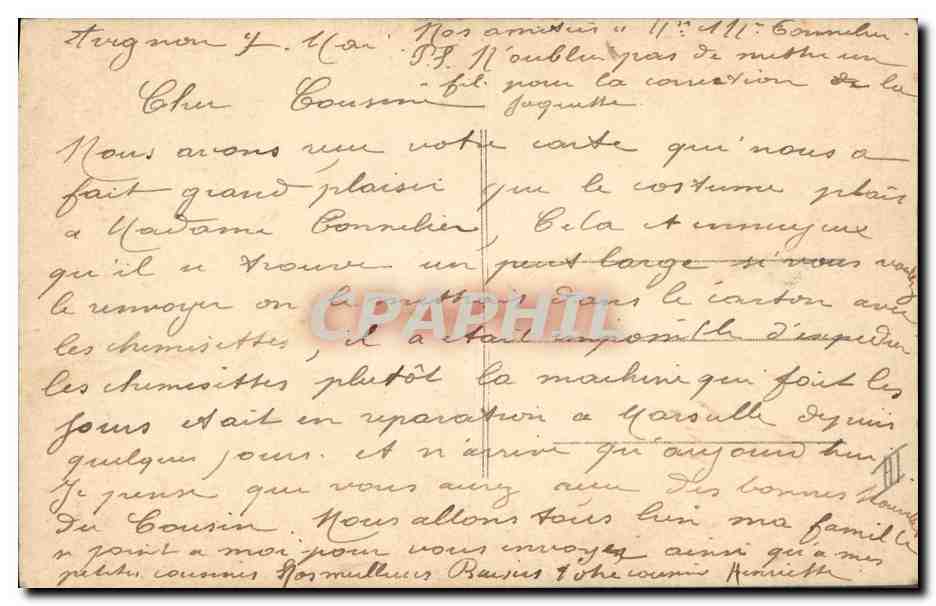 Avignon 7. Mai Nos amitiés a Mr Mme Tonnelier.
PS. N'oubliez pas de mettre un
fil pour la correction de la
jaquette.
Cher Cousine
Nous avons reçu votre carte qui nous a
fait grand plaisir que le costume plais
a Madame Tonnelier, Cela et ennuyeux
qu'il ce trouve un peut large si vous voulez
le renvoyer on le mettrais dans le carton avec
les chemisettes, il a etait impossible d'expedier
les chemisettes plutôt la machine qui fait les
Jours etait en reparation a Marseille depuis
quelques jours. et n'arrive qu'aujourd hui,
Je pense que vous avez avec des bonnes Nouvelles
Du Cousin. Nous allons tous bien ma famille
ce joint a moi pour vous envoyer ainsi qu'a mes
petites cousines Nos meilleurs Baisers Votre cousine Henriette
III
CPAPHIL